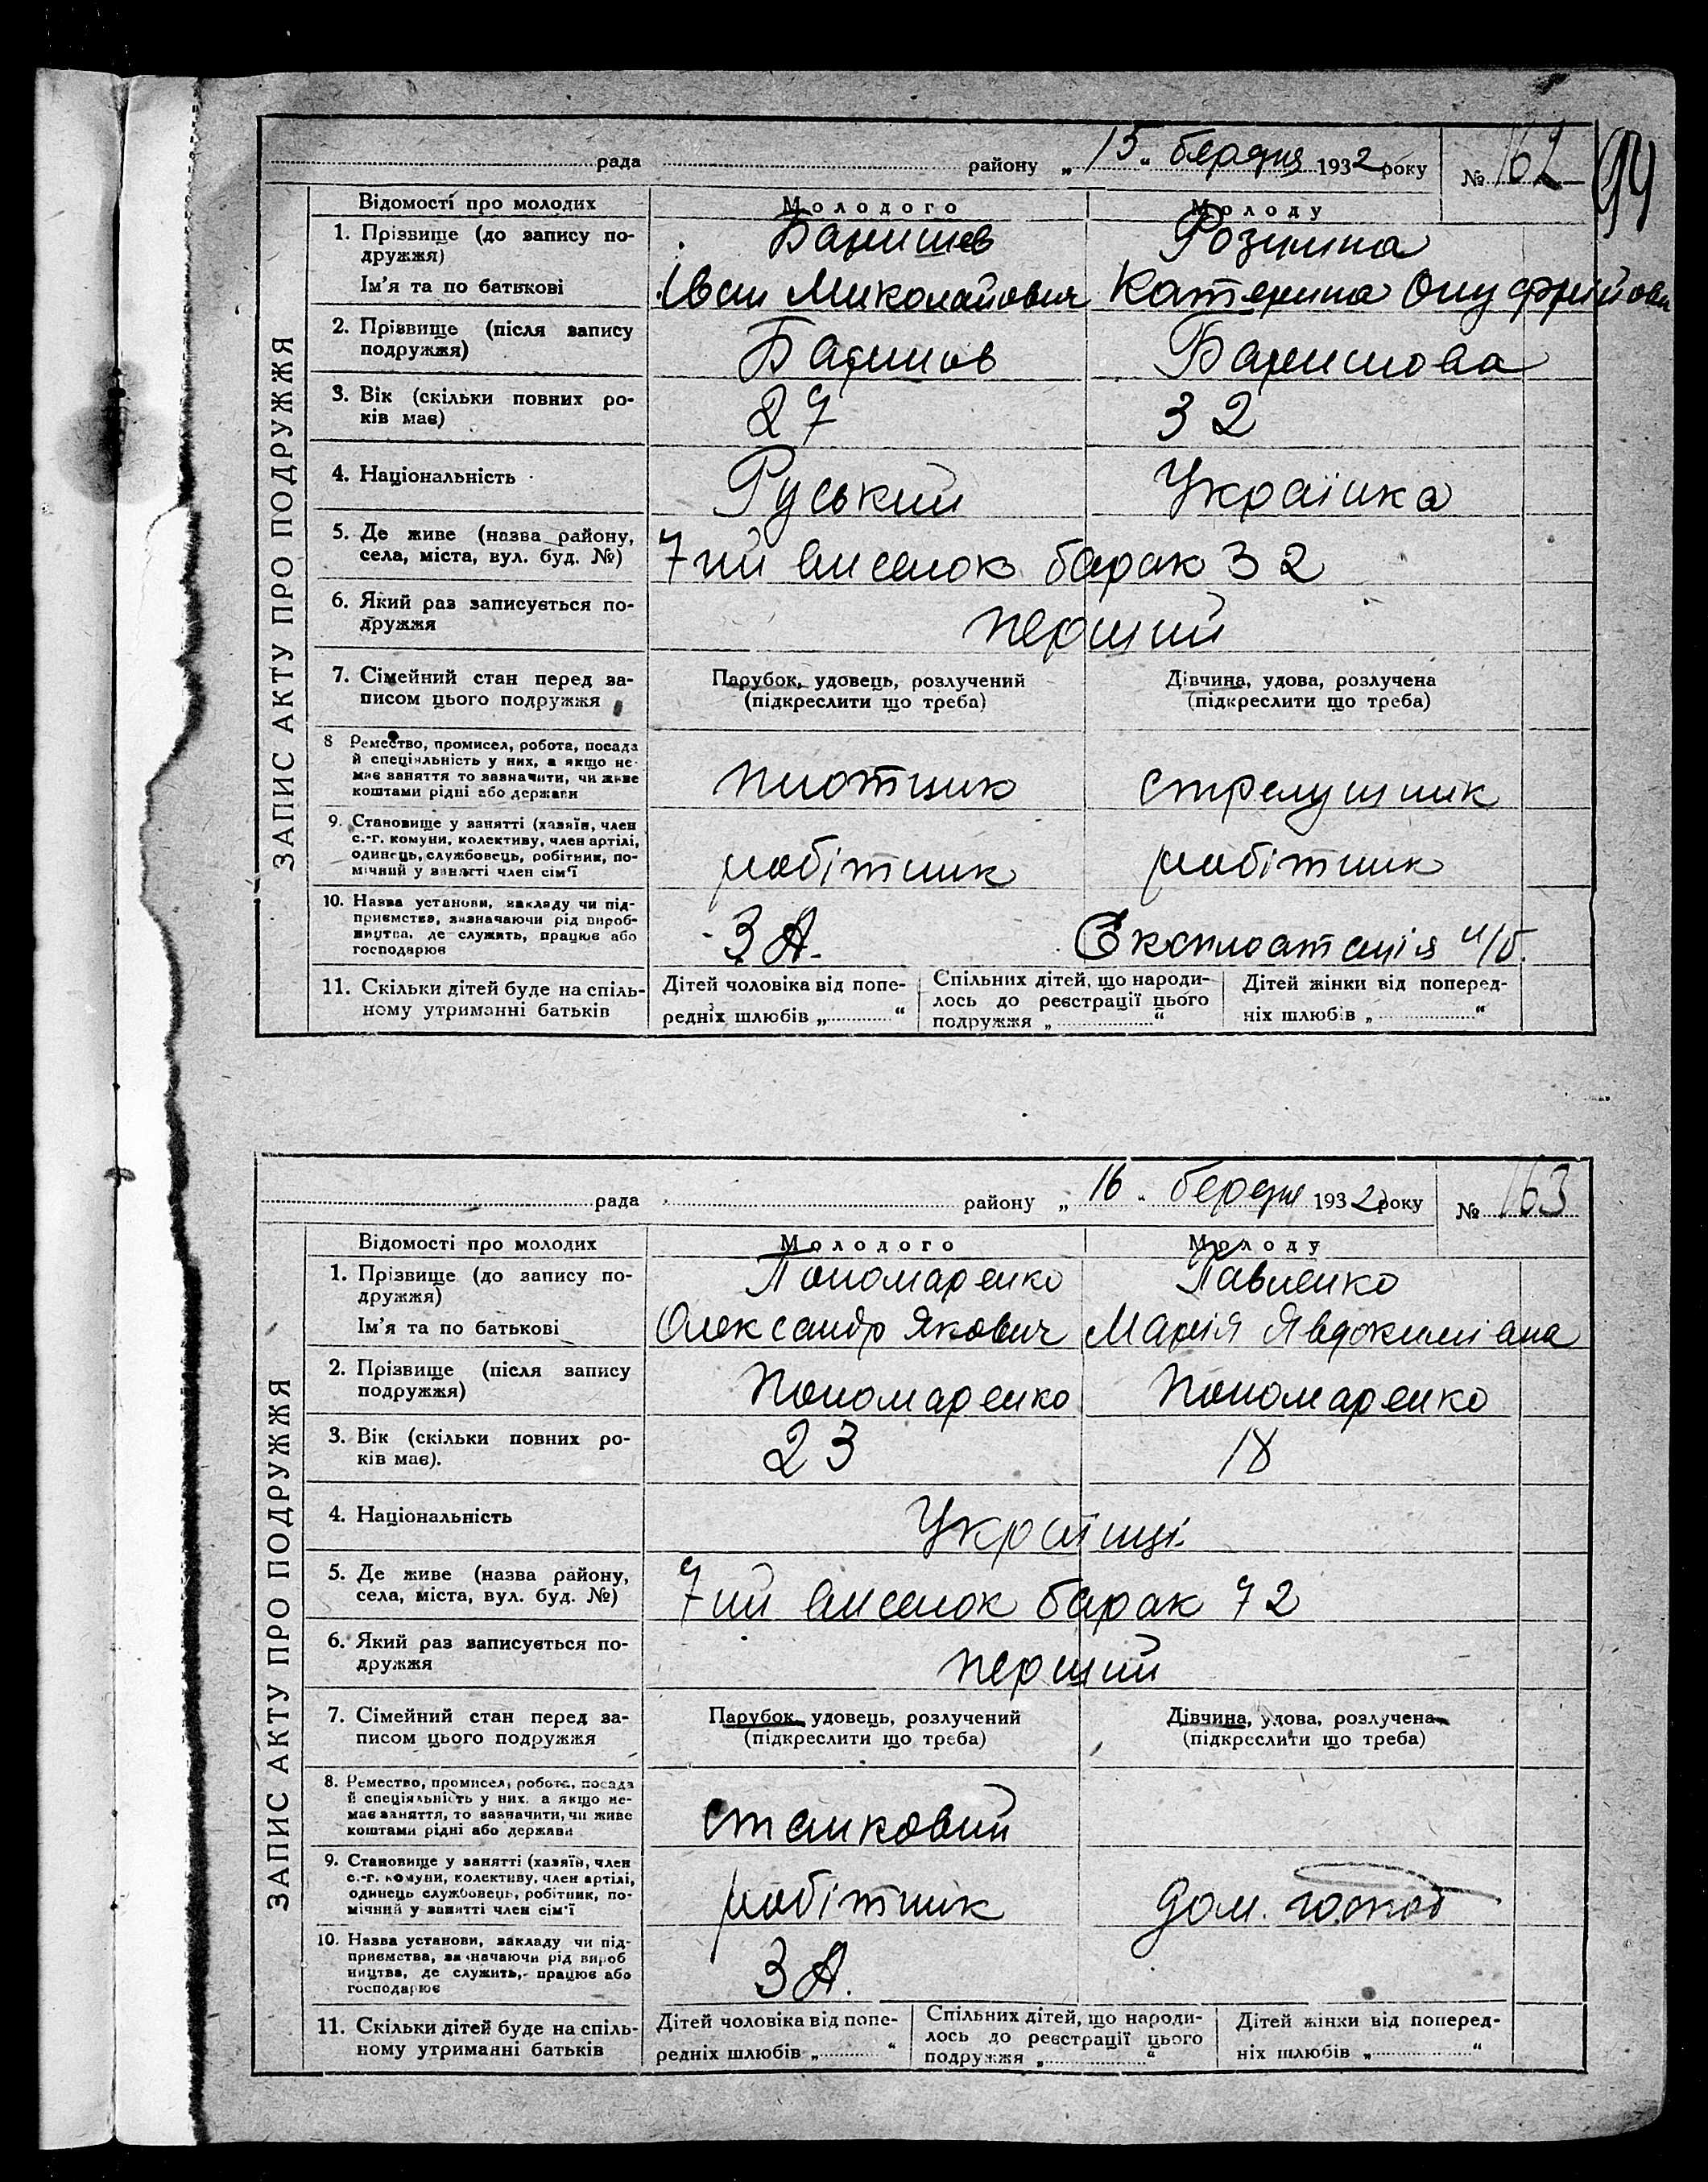 рада району „ 15 „ березня 1932 року № 162 99
ЗАПИС АКТУ ПРО ПОДРУЖЖЯ
Відомості про молодих Молодого Молоду
1. Прізвище (до запису по-
дружжя)
Розумна
Ім'я та по батькові Іван Миколайович Катерина Онуфрийовн
2. Прізвище (після запису
подружжя)
3. Вік (скільки повних ро-
ків має)
27 32
4. Національність Руський Украінка
5. Де живе (назва району,
села, міста, вул. буд. №)
7ий виселок барак 32
6. Який раз записується по-
дружжя
перший
7. Сімейний стан перед за-
писом цього подружжя
Парубок, удовець, розлучений
(підкреслити що треба)
Дівчина, удова, розлучена
(підкреслити що треба)
8 Ремество, промисел, робота, посада
й спеціяльність у них, а якщо не-
має заняття то зазначити, чи живе
коштами рідні або держави
плотник стрелушник
9. Становище у занятті (хазяїн, член
с.-г. комуни, колективу, член артілі,
одинець, службовець, робітник, по-
мічний у занятті член сім'ї
робітник робітник
10. Назва установи, закладу чи під-
приємства, зазначаючи рід вироб-
ництва, де служить, працює або
господарює
З А. Експлоатація ч/б.
11. Скільки дітей буде на спіль-
ному утриманні батьків
Дітей чоловіка від попе-
редніх шлюбів „ “
Спільних дітей, що народи-
лось до реєстрації цього
подружжя „ “
Дітей жінки від поперед-
ніх шлюбів „ “
рада району „ 16 „ березня 1932 року № 163
ЗАПИС АКТУ ПРО ПОДРУЖЖЯ
Відомості про молодих Молодого Молоду
1. Прізвище (до запису по-
дружжя)
Пономаренко Павленко
Ім'я та по батькові Олександр Якович Марія Явдокиміана
2. Прізвище (після запису
подружжя)
Пономаренко Пономаренко
3. Вік (скільки повних ро-
ків має).
23 18
4. Національність Украінці
5. Де живе (назва району,
села, міста, вул. буд. №)
7ий виселок барак 72
6. Який раз записується по-
дружжя
перший
7. Сімейний стан перед за-
писом цього подружжя
Парубок, удовець, розлучений
(підкреслити що треба)
Дівчина, удова, розлучена
(підкреслити що треба)
8. Ремество, промисел, робота, посада
й спеціяльність у них, а якщо не-
має заняття, то зазначити, чи живе
коштами рідні або держави
станковий
9. Становище у занятті (хазяїн, член
с.-г. комуни, колективу, член артілі,
одинець службовець, робітник, по-
мічний у занятті член сім'ї
робітник дом. господ
10. Назва установи, закладу чи під-
приємства, зазначаючи рід вироб
ництва, де служить, працює або
господарює
З А.
11. Скільки дітей буде на спіль-
ному утриманні батьків
Дітей чоловіка від попе-
редніх шлюбів „ “
Спільних дітей, що народи-
лось до реєстрації цього
подружжя „ “
Дітей жінки від поперед-
ніх шлюбів „ “